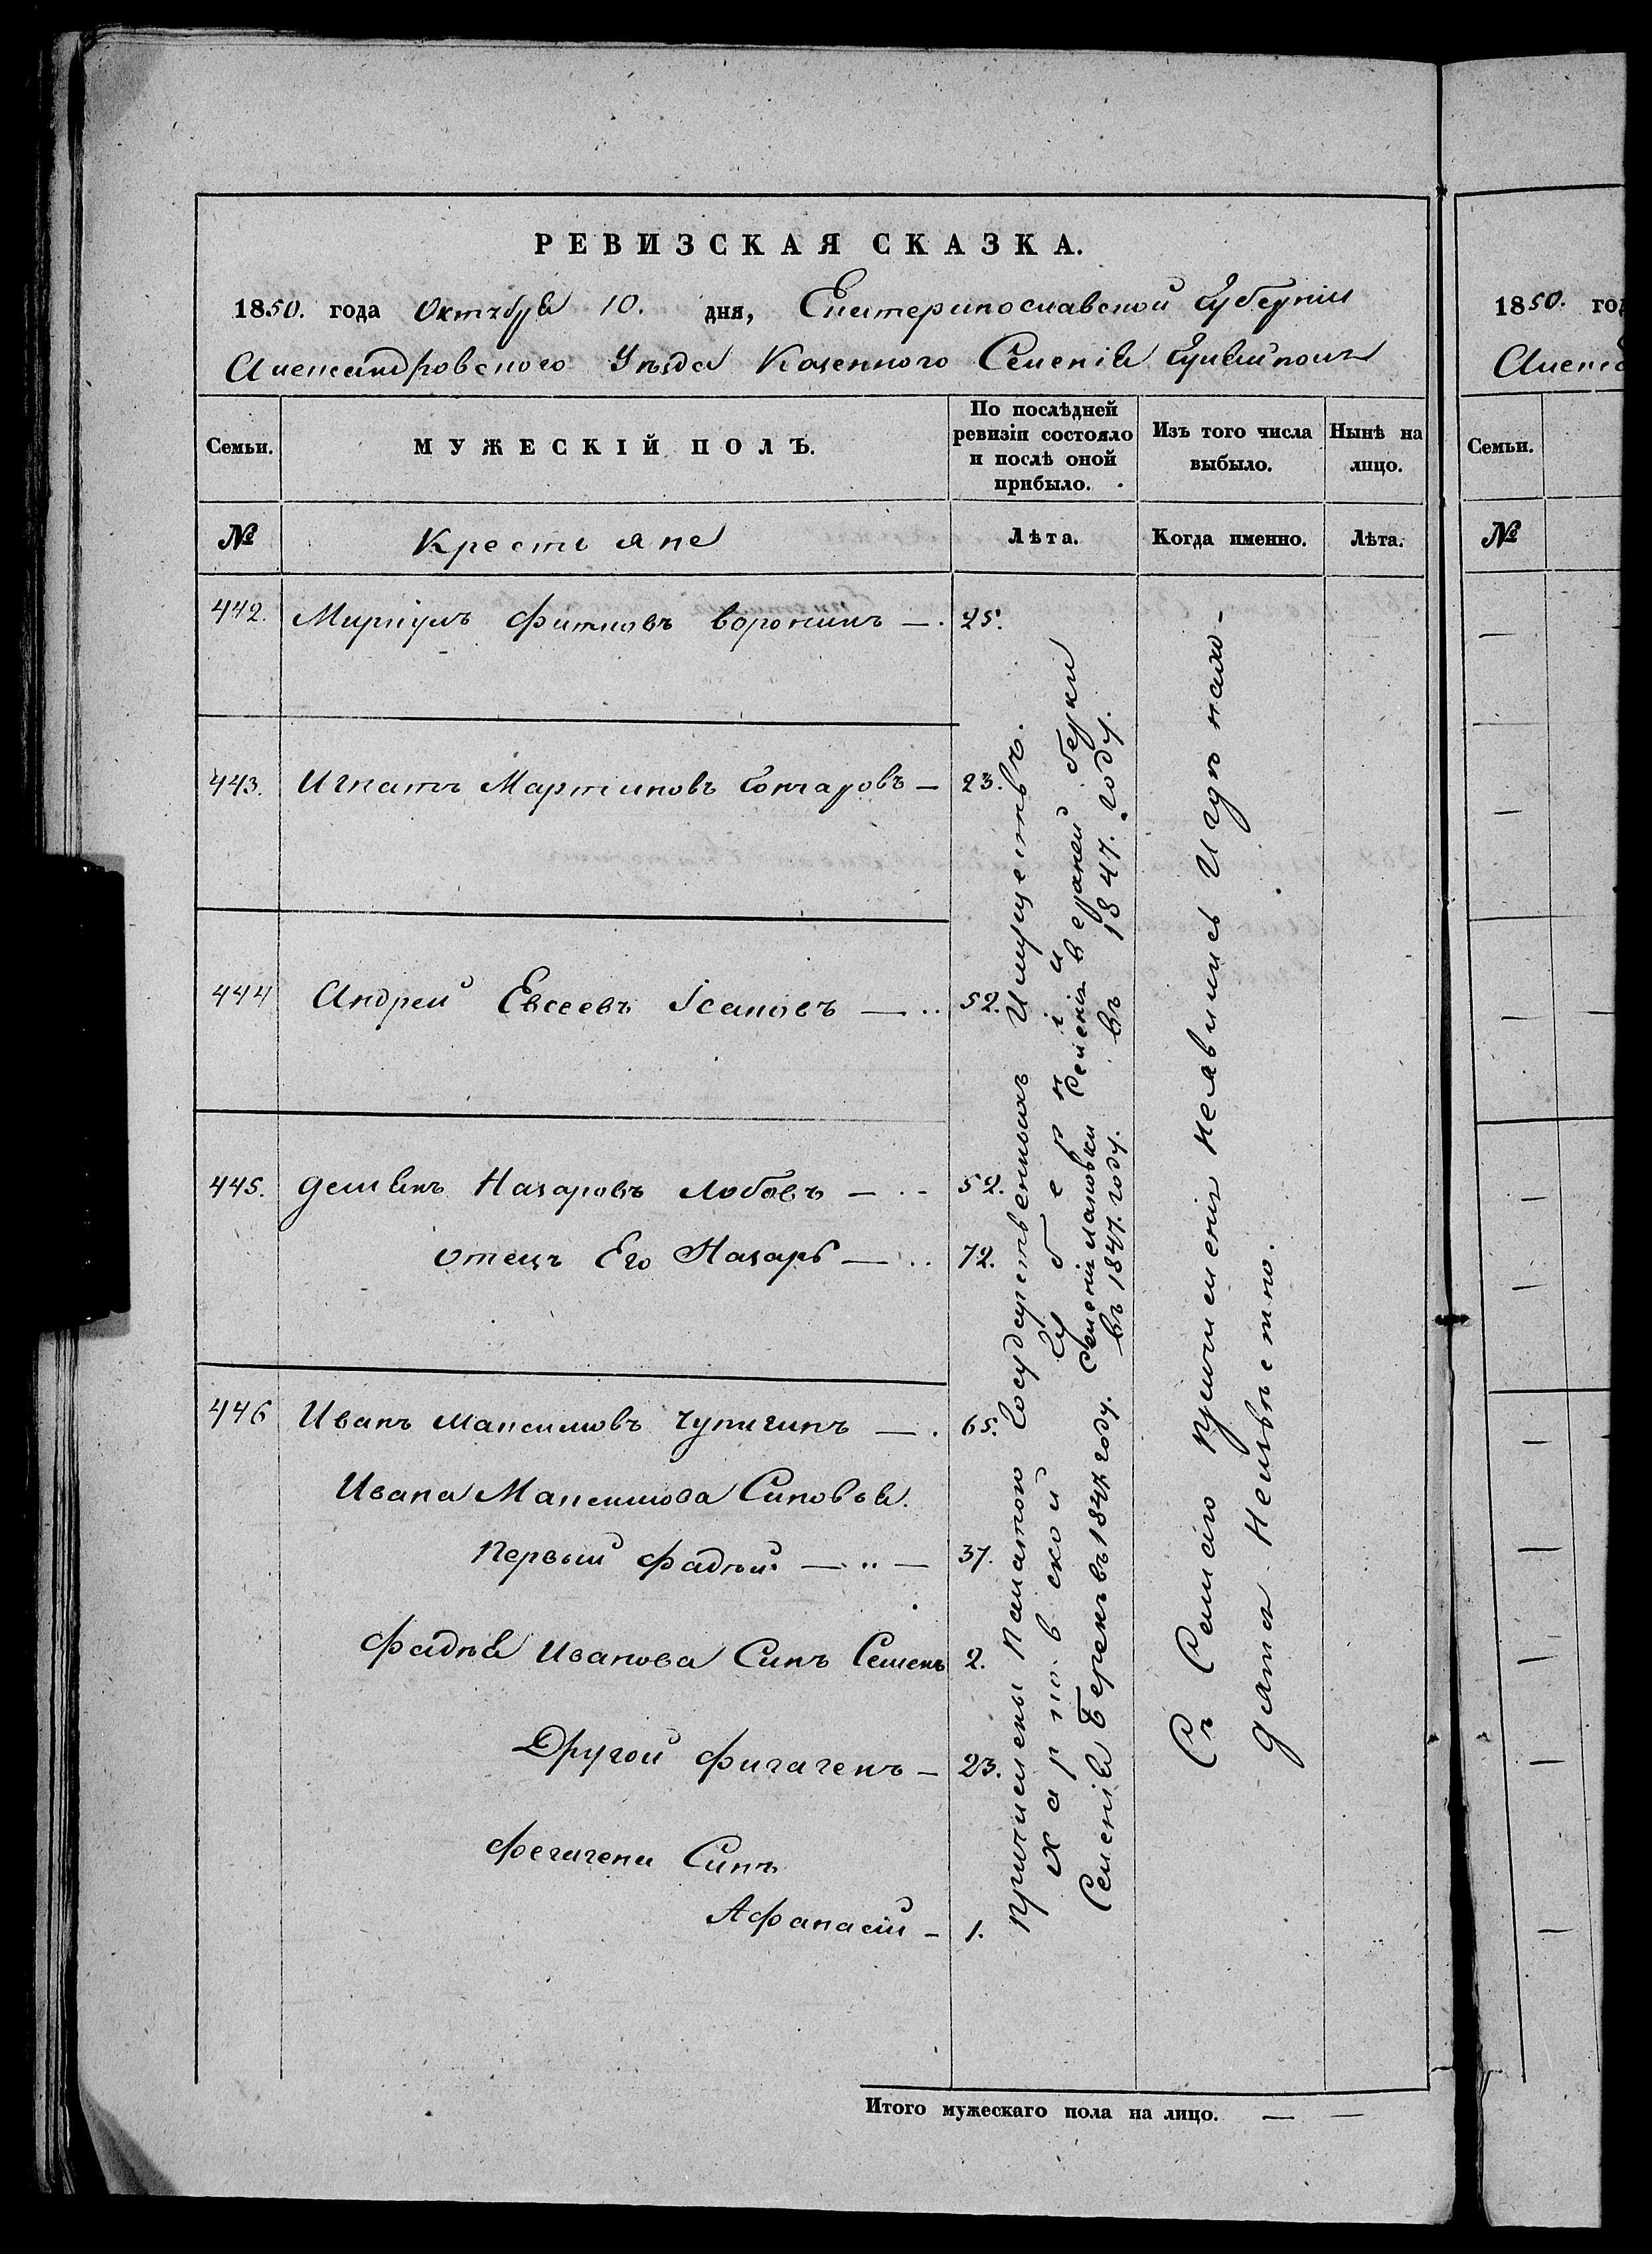 РЕВИЗСКАЯ СКАЗКА.
1850. года Октября 10. дня, Екатеринославской Губерніи
Александровского Уѣзда Казенного Селенія Гуляйполя
Семьи.
МУЖЕСКІЙ ПОЛЪ.
По послѣдней ревизіи состояло и послѣ оной прибыло.
Изъ того числа выбыло.
Нынѣ на лицо.
№
Крестьяне
Лѣта.
Когда именно.
Лѣта.
442. Воронинъ — 25.
443. Игнатъ Мартиновъ Гончаровъ — 23.
444 Андрей Евсеевъ Ісаковъ — 52.
445. Демянъ Назаровъ Лобовъ — 52.
отецъ Его Назаръ — 72.
446 Иванъ Максимовъ Чупигинъ — 65.
Ивана Максимова Синовья.
Первый Фадѣй — 37.
Фадѣя Иванова Синъ Семенъ 2.
Другой — 23.
Синъ
Афанасій — 1.
Причислены Палатою Государственныхъ Имуществъ.
Харковской Губерніи
Селенія Берекъ въ 1847 году. Селенія въ 1847. году. Селенія в 1847. году.
Съ Самаго Причисленія Неявились И Гдѣ нахо-
дятся Неизвѣстно.
Итого мужескаго пола на лицо. — —
1850. го
Семьи.
№